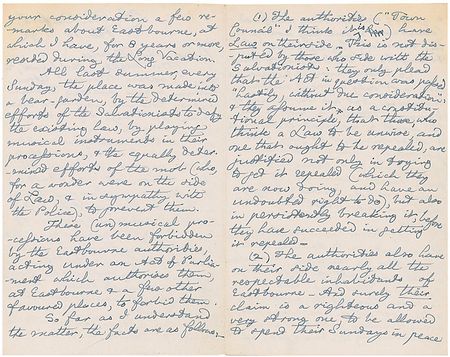 your consideration a few re-
marks about Eastbourne, at
which I have, for 8 years or more,
resided during the Long Vacation.
All last summer, every
Sunday, the place was made into
a bear-garden, by the determined
efforts of the Salvationists to defy
the existing law, by playing
musical instruments in their
processions, & the equally deter-
mined efforts of the mob (who,
for a wonder, were on the side
of Law, & in sympathy with
the Police), to prevent them.
These (un)musical pro-
cessions have been forbidden
by the Eastbourne authorities,
acting under an Act of Parlia-
ment which authorises them,
at Eastbourne & a few other
favoured places, to forbid them.
So far as I understand
the matter, the facts are as follows,—
(1) The authorities ("Town
Council" I think it is) have
Law on their side. This is not dis-
puted by those who side with the
Salvationists: they only plead
that the Act in question was passed
"hastily, without due consideration"
& they assume it, as a constitu-
tional principle, that those, who
think a Law to be unwise, and
one that ought to be repealed, are
justified not only in trying
to get it repealed (which they
are now doing, and have an
undoubted right to do), but also
in persistently breaking it, before
they have succeeded in getting
it repealed—
(2) The authorities also have
on their side nearly all the
respectable inhabitants of
Eastbourne. And surely their
claim is a righteous and a
very strong one to be allowed
to spend their Sundays in peace